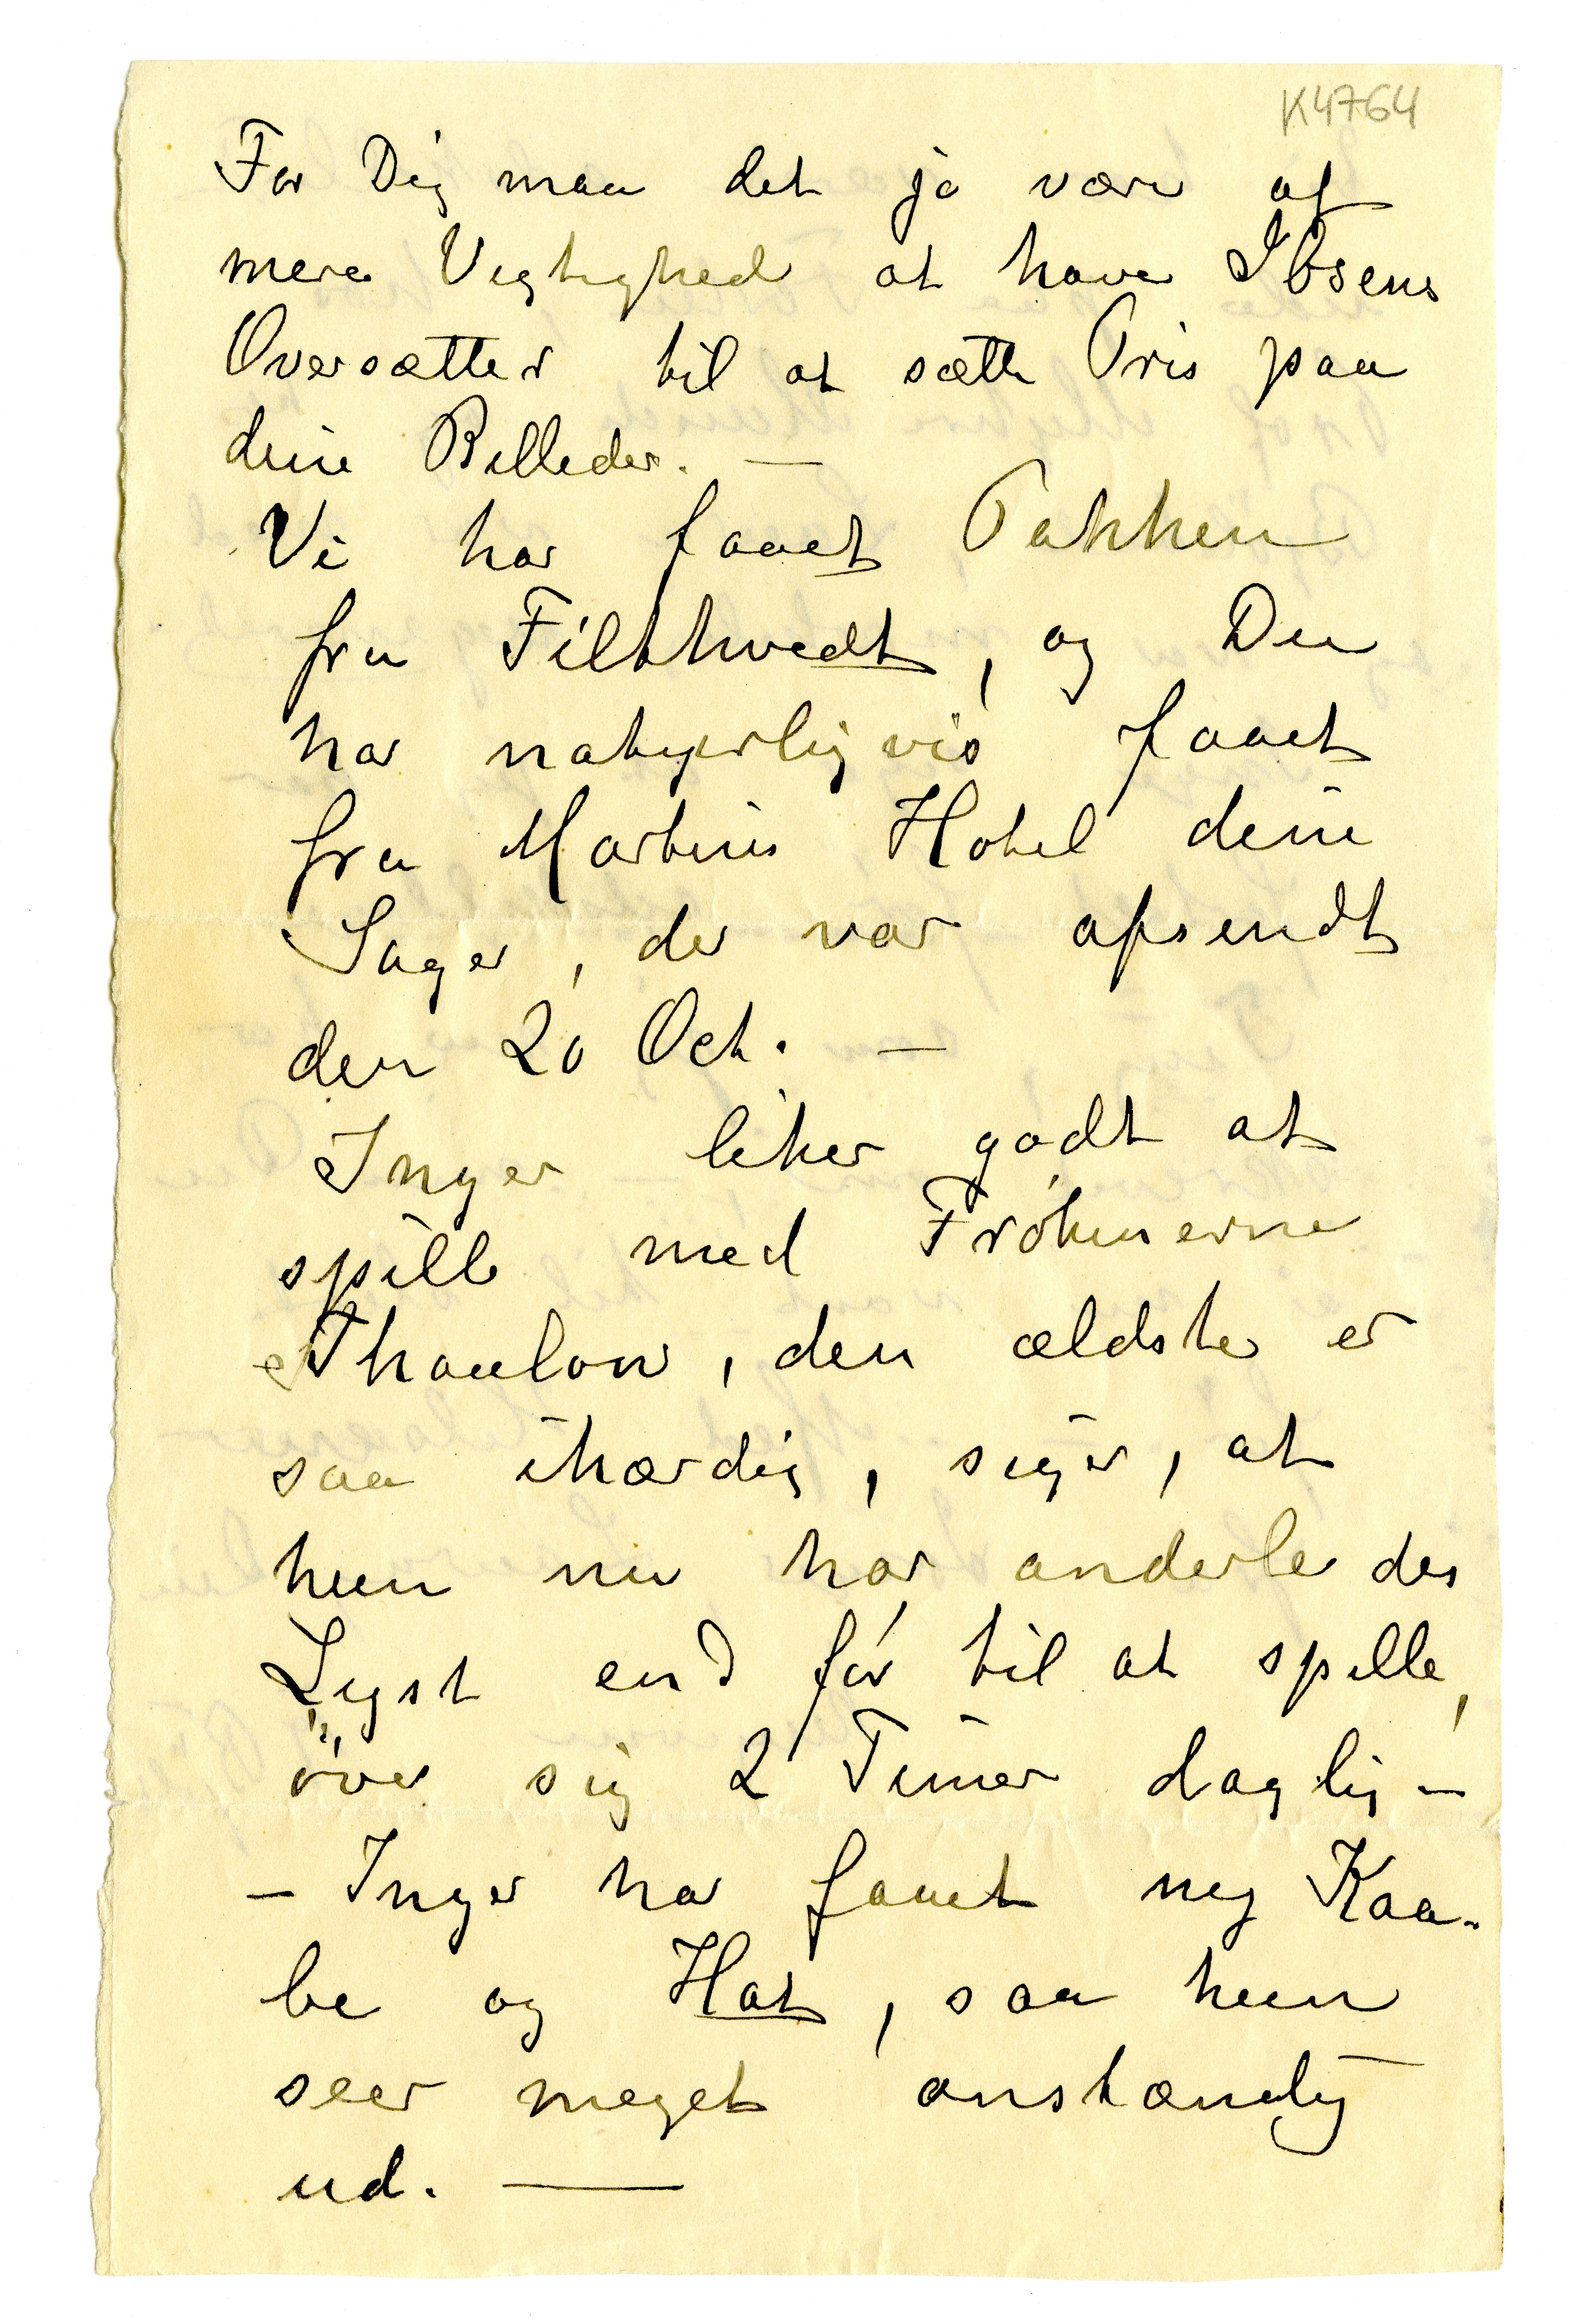 K4764
For Dig maa det jo være af
mere Vigtighed at have Ibsens
Oversætter til at sætte Pris paa
dine Billeder. —
Vi har faaet Pakken
fra Filthvedt, og Du
har naturligvis faaet
fra Martins Hotel dine
Sager, der var afsendt
den 20 Oct. —
Inger liker godt at
spille med Frökнerne
Thaulow, den ældste er
saa ihærdig, siger, at
hun nu har anderledes
Lyst end før til at spille,
över sig 2 Timer daglig –
– Inger har faaet ny Kaa-
be og Hat, saa hun
seer meget anstændig
ud. —